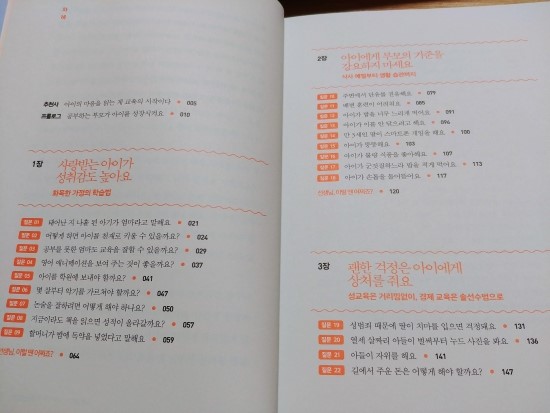 차
례
추천사 아이의 마음을 읽는 게 교육의 시작이다 • 005
프롤로그 공부하는 부모가 아이를 성장시켜요 • 010
1장
사랑받는 아이가
성취감도 높아요
화목한 가정의 학습법
질문 01 태어난 지 나흘 된 아기가 엄마라고 말해요 • 021
질문 02 어떻게 하면 아이를 천재로 키울 수 있을까요? • 024
질문 03 공부를 못한 엄마도 교육을 잘할 수 있을까요? • 029
질문 04 영어 애니메이션을 보여 주는 것이 좋을까요? • 037
질문 05 아이를 학원에 보내야 할까요? • 041
질문 06 몇 살부터 악기를 가르쳐야 할까요? • 047
질문 07 논술을 잘하려면 어떻게 해야 하나요? • 050
질문 08 지금이라도 책을 읽으면 성적이 올라갈까요? • 057
질문 09 할머니가 밤에 독약을 넣었다고 말해요 • 059
선생님, 이럴 땐 어쩌죠? • 064
2장
아이에게 부모의 기준을
강요하지 마세요
질문 10 주변에서 안좋을 권유해요 • 079
질문 11 배변 훈련이 어려워요 • 085
질문 12 아이가 말을 너무 느리게 떡어요 • 091
질문 13 아이가 이를 안 닦으려고 해요 • 096
질문 14 만 3세인 딸이 스마트폰 게임을 해요 • 100
질문 15 아이가 뚱뚱해요 • 103
질문 16 아이가 불량 식품을 좋아해요 • 107
질문 17 아이가 군것질하느라 밥을 적게 먹어요 • 113
질문 18 아이가 온몸을 틀어들어요 • 117
선생님, 이럴 땐 어쩌죠? • 120
3장
괜한 걱정은 아이에게
상처를 줘요
성교육은 거리낌없이, 경제 교육은 솔선수범으로
질문 19 성범죄 때문에 딸이 치마를 입으면 걱정돼요 • 131
질문 20 열세 살짜리 아들이 벌써부터 누드 사진을 봐요 • 136
질문 21 아들이 자위를 해요 • 141
질문 22 길에서 주운 돈은 어떻게 해야 할까요? • 147